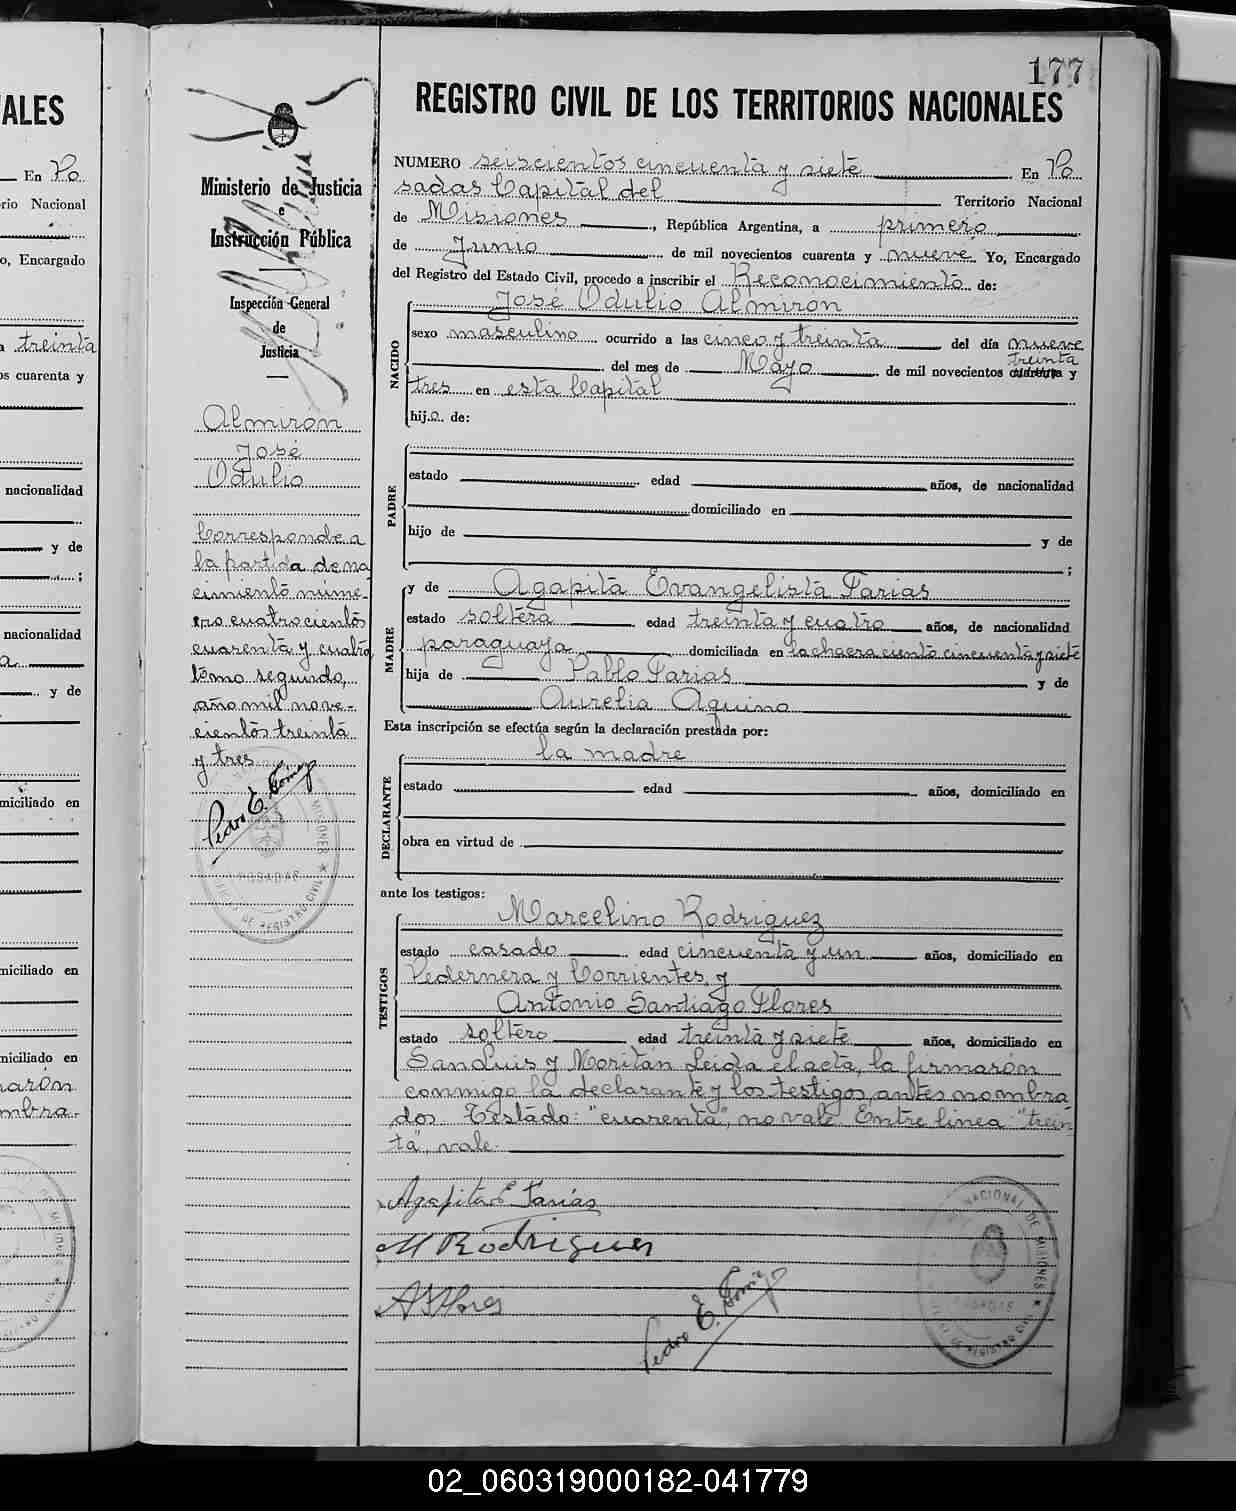 177
REGISTRO CIVIL DE LOS TERRITORIOS NACIONALES
Ministerio de Justicia
e
Instrucción Pública
Inspección General
de
Justicia
Almirón
José
Odulio
Corresponde a
la partida de na
cimiento núme-
ro cuatrocientos
cuarenta y cuatro
tomo segundo,
año mil nove-
cientos treinta
y tres
Pedro E. Gómez
POSADAS
MISIONES
OFICINA DE REGISTRO CIVIL
NUMERO seiscientos cincuenta y siete En Po
sadas Capital del Territorio Nacional
de Misiones, República Argentina, a primero
de Junio de mil novecientos cuarenta y nueve Yo, Encargado
del Registro del Estado Civil, procedo a inscribir el Reconocimiento de:
José Odulio Almirón
NACIDO
sexo masculino ocurrido a las cinco y treinta del día nueve
treinta
del mes de Mayo de mil novecientos cuarenta y
tres en esta Capital
hijo de:
PADRE
estado edad años, de nacionalidad
domiciliado en
hijo de y de
;
MADRE
y de Agapita Evangelista Farias
estado soltera edad treinta y cuatro años, de nacionalidad
paraguaya domiciliada en la chacra ciento cincuenta y siete
hija de Pablo Farias y de
Aurelia Aquino
Esta inscripción se efectúa según la declaración prestada por:
la madre
DECLARANTE
estado edad años, domiciliado en
obra en virtud de
ante los testigos:
TESTIGOS
Marcelino Rodriguez
estado casado edad cincuenta y un años, domiciliado en
Pedernera y Corrientes y
Antonio Santiago Flores
estado soltero edad treinta y siete años, domiciliado en
San Luis y Moritán Leida el acta, la firmarón
conmigo la declarante y los testigos, antes nombra
dos. Testado: "cuarenta", no vale. Entre linea "trein
ta", vale.
Agapita E Farias
M Rodriguez
A S Flores
Pedro E. Gómez
NACIONAL DE MISIONES
POSADAS
DE REGISTRO CIVIL
ALES
En Po
rio Nacional
o, Encargado
a treinta
os cuarenta y
nacionalidad
y de
;
nacionalidad
a
y de
miciliado en
miciliado en
miciliado en
marón
mbra-
02_060319000182-041779